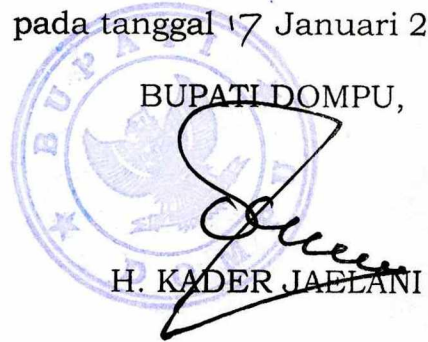 pada tanggal 17 Januari 2
BUPATI DOMPU,
H. KADER JAELANI